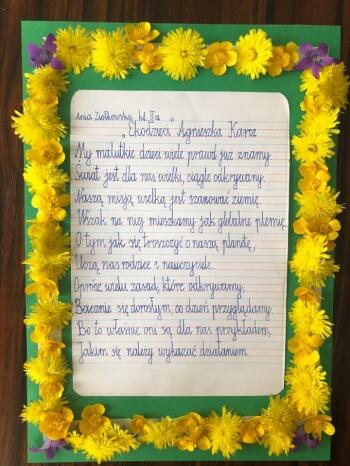 Ania Ziółkowska, kl. IIa
"Ekodzieci" Agnieszka Karcz
My malutkie dzieci wiele prawd już znamy.
Świat jest dla nas wielki, ciągle odkrywany.
Naszą misją wielką jest szanować ziemię.
Wszak na niej mieszkamy jak globalne plemię.
O tym jak się troszczyć o naszą planetę,
Uczą nas rodzice i nauczyciele.
Oprócz wielu zasad, które odkrywamy,
Bacznie się dorosłym, co dzień przyglądamy.
Bo to właśnie oni są dla nas przykładem,
Jakim się należy wykazać działaniem.